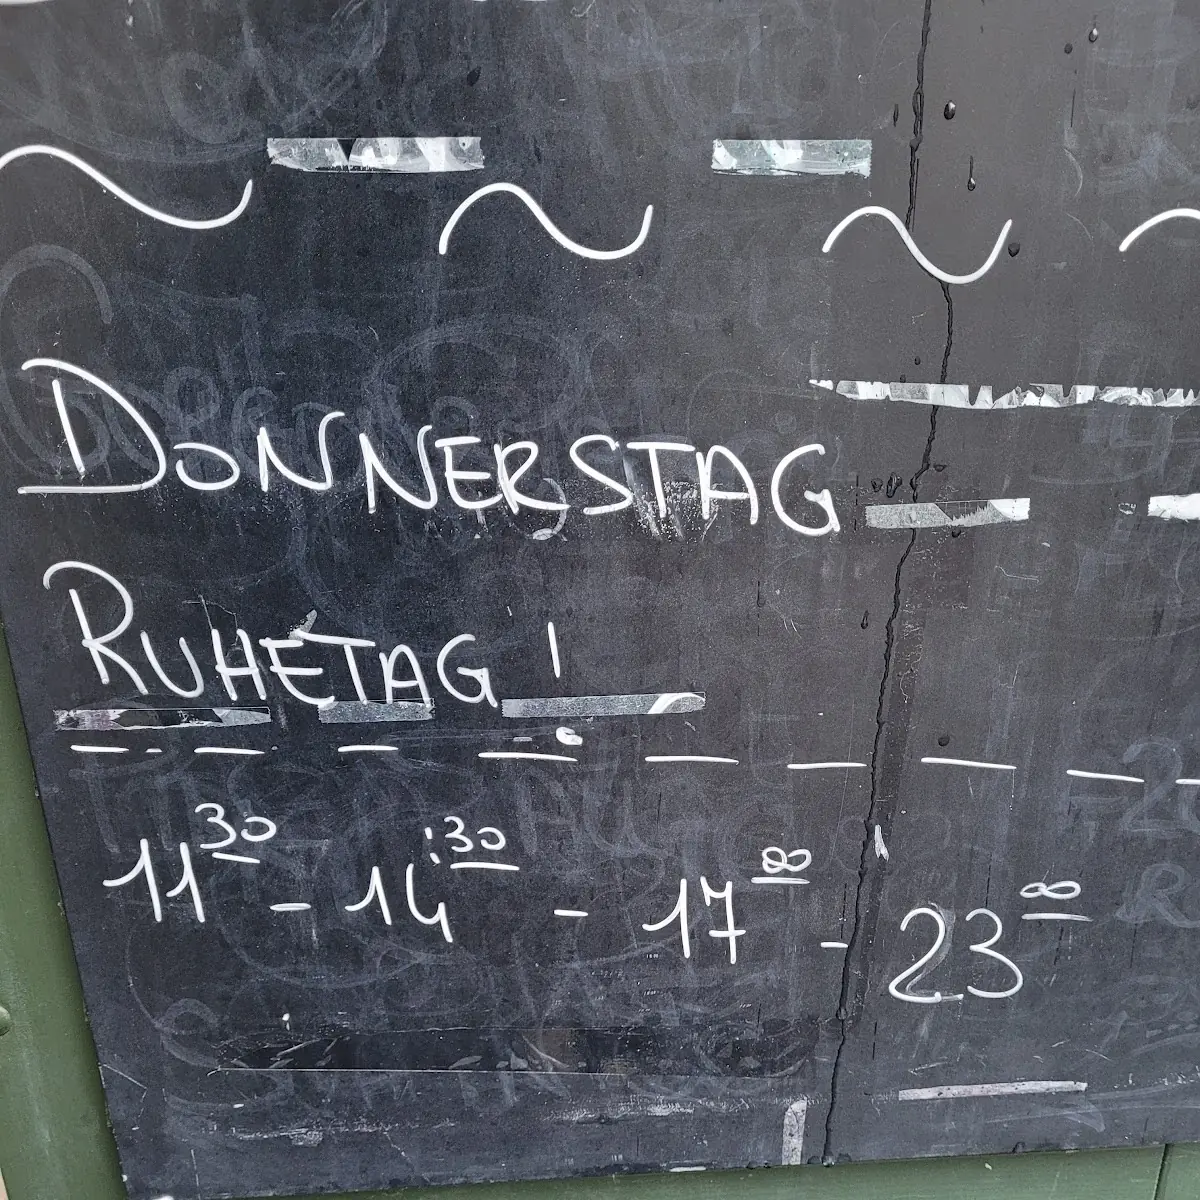 DONNERSTAG
RUHETAG !
11 30 - 14 :30 - 17 00 - 23 00